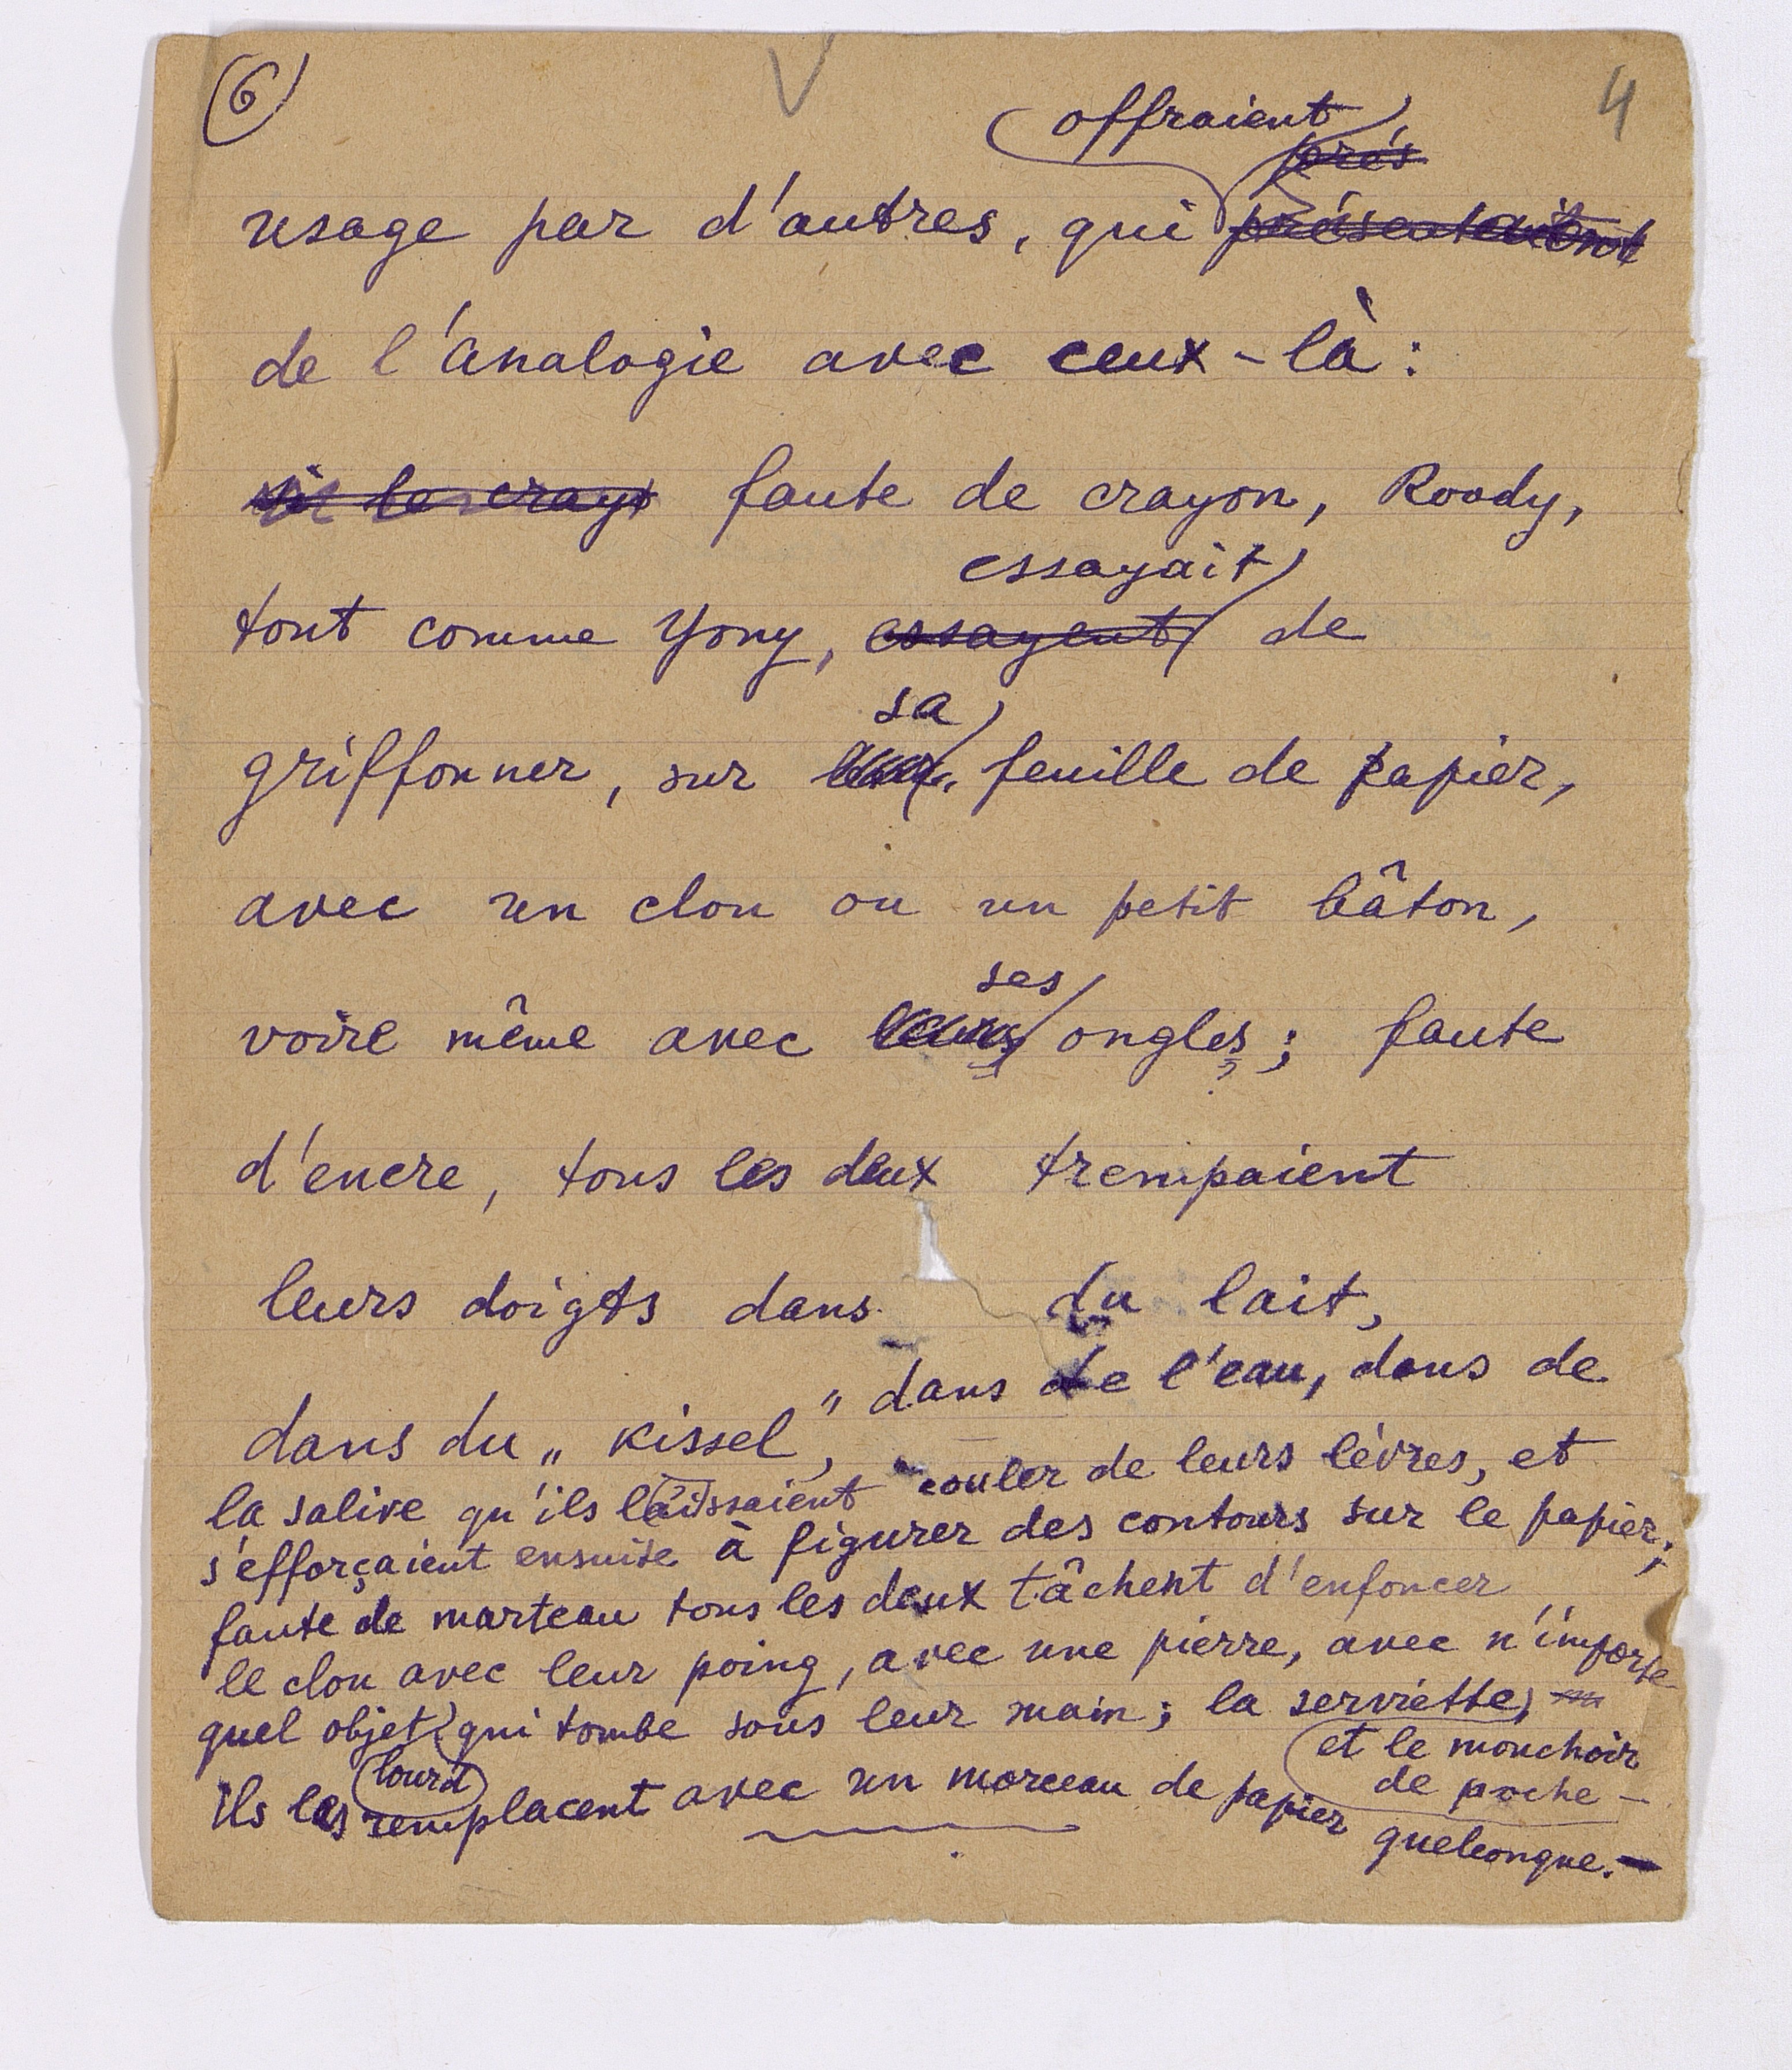 6 V 4
offraient
prés
usage par d'autres, qui présentaient
de l'analogie avec ceux-là :
faute de crayon, Roody,
essayait
tout comme Yony, essayent de
sa
griffonner, sur leur feuille de papier,
avec un clou ou un petit bâton,
ses
voire même avec leurs ongles ; faute
d'encre, tous les deux trempaient
leurs doigts dans du lait,
dans du „ kissel, " dans de l'eau, dans de
la salive qu'ils laissaient couler de leurs lèvres, et
s'efforçaient ensuite à figurer des contours sur le papier ;
faute de marteau tous les deux tâchent d'enfoncer
le clou avec leur poing, avec une pierre, avec n'importe
quel objet qui tombe sous leur main ; la serviette,
lourd
et le mouchoir
de poche —
ils les remplacent avec un morceau de papier quelconque. —